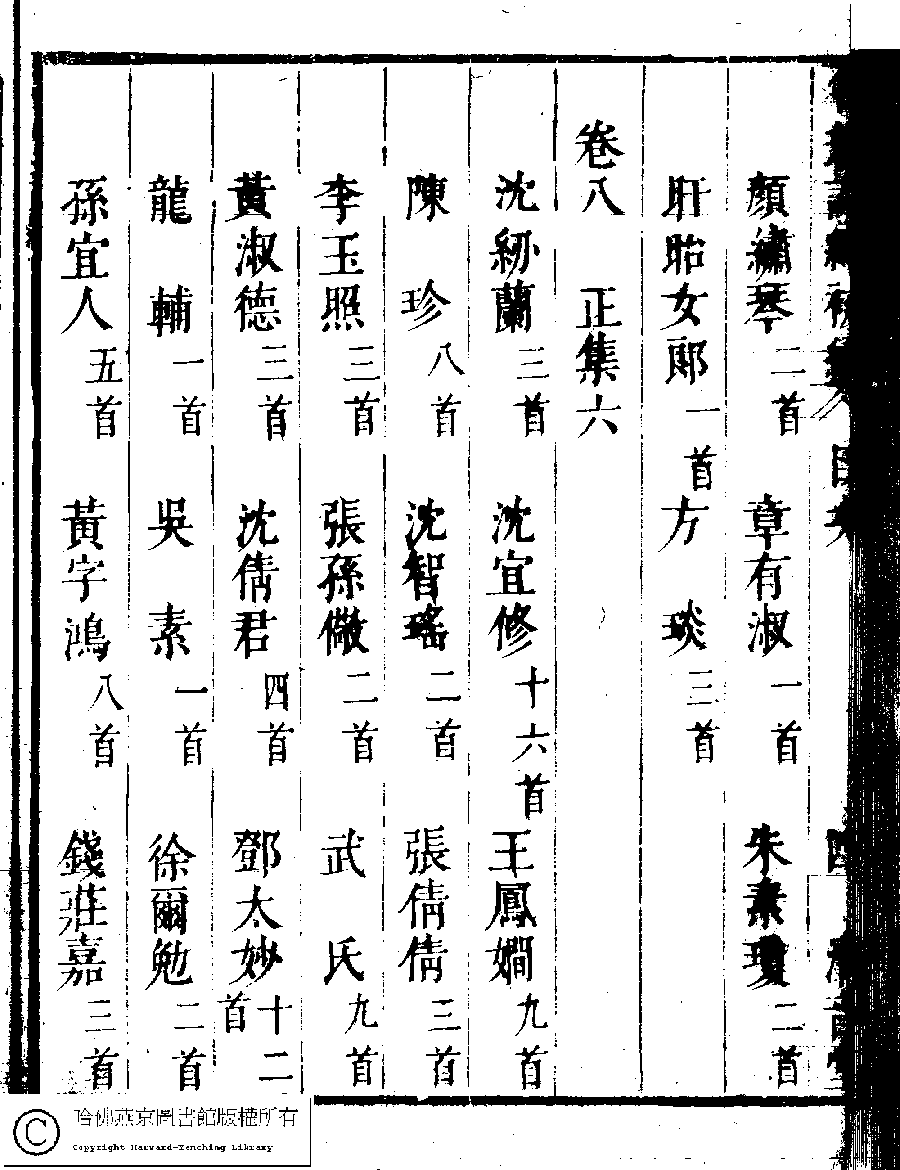 顏繡琴二首　章有淑一首　朱素瓊二首
盱眙女郎一首　方琰三首
卷八　正集六
沈紉蘭三首　沈宜修十六首　王鳳嫺九首
陳珍八首　沈智瑤二首　張倩倩三首
李玉照三首　張孫儆二首　武氏九首
黃淑德三首　沈倩君四首　鄧太妙十二首
龍輔一首　吳素一首　徐爾勉二首
孫宜人五首　黃字鴻八首　錢莊嘉三首
哈佛燕京圖書館版權所有
Copyright Harvard-Yenching Library